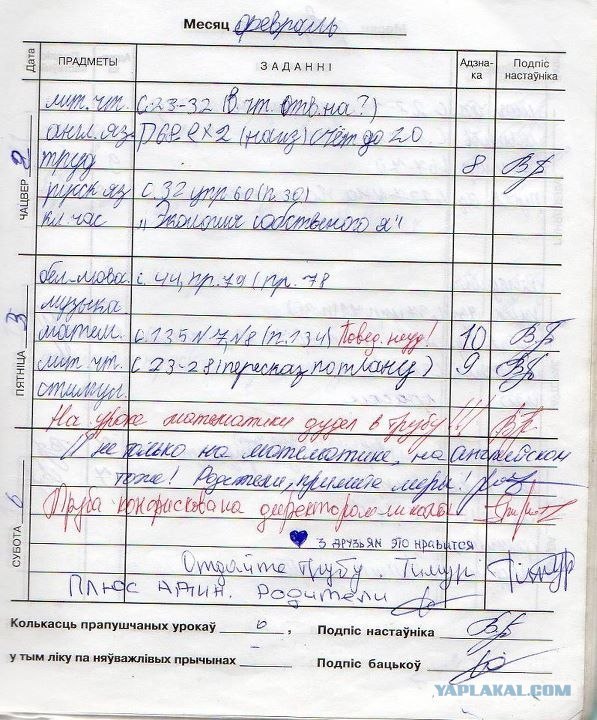 Месяц февраль
Дата ПРАДМЕТЫ ЗАДАННІ Адзнака Подпіс настаўніка
ЧАЦВЕР 2
лит. чт. с. 23-32 (в. чт. отв. на ?)
англ. яз. счёт до 20
труд 8
с. 32 упр 60 (п. 30)
кл. час "
ПЯТНІЦА 3
бел. мова. с. 44, пр. 79 (пр. 78
музыка.
матем. с. 135 №7, №8 (п. 134) Повед. неуд! 10
лит. чт. с 23-28 (пересказ по плану) 9
На уроке математики дудел в трубу!!!
СУБОТА 6
И не только на математике, на английском
тоже! Родители, примите меры!
Труба конфискована директором школы
♥ 3 ДРУЗЬЯМ ЭТО НРАВИТСЯ
Отдайте трубу. Тимур
Плюс адин. Родители
Колькасць прапушчаных урокаў 6, Подпіс настаўніка
у тым ліку па няўважлівых прычынах Подпіс бацькоў
YAPLAKAL.COM